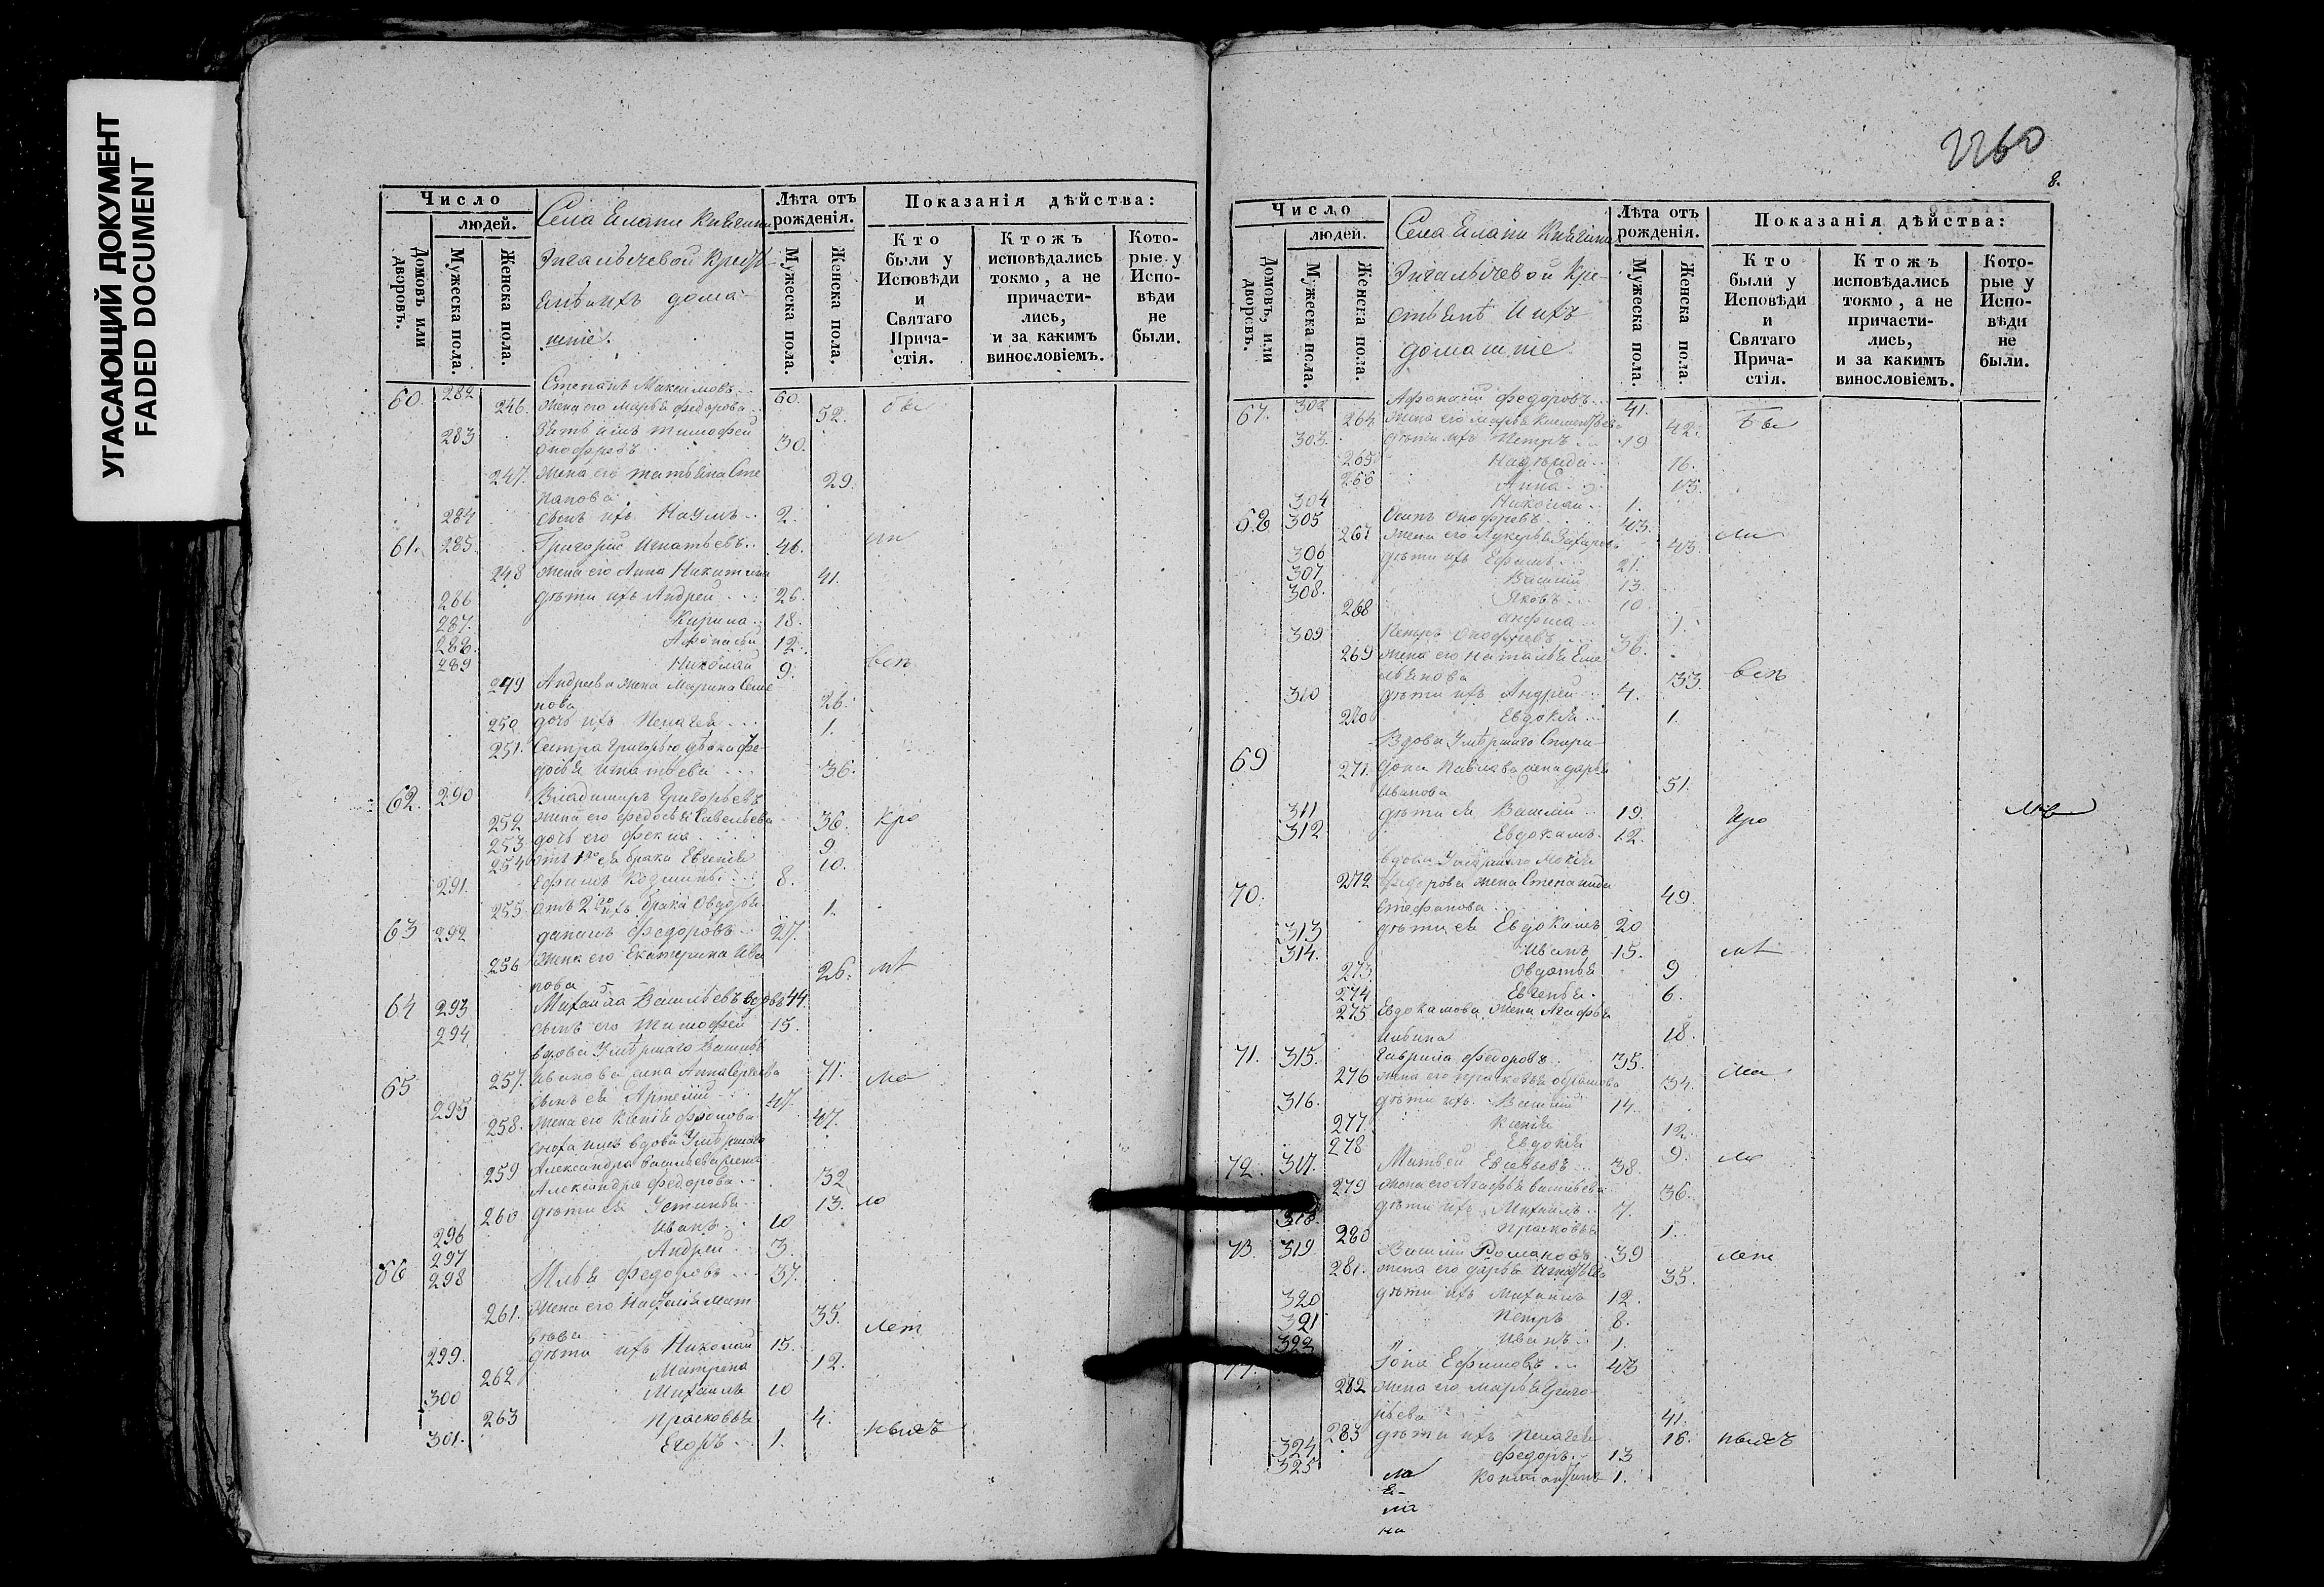 УГАСАЮЩИЙ ДОКУМЕНТ
FADED DOCUMENT
Число
людей.
Домовъ или дворовъ.
Мужеска пола.
Женска пола.
Села Елати Княгини
Энгалычевой Крест
дома
шніе.
Лѣта отъ рожденія.
Мужеска пола.
Женска пола.
Показанія дѣйства:
Кто были у Исповѣди и Святаго Прича-стія.
Ктожъ исповѣдались токмо, а не причасти-лись, и за какимъ винословіемъ.
Кото-рые у Испо-вѣди не были.
60. 282 Степанъ Максимовъ 60.
246. жена его Марья Федорова 52. бы
283 Зять ихъ Тимофей
Онофревъ 30.
247. жена его Татьяна Сте
панова 29.
284 сынъ ихъ Наумъ 2.
61. 285. Григорій Игнатьевъ 46.
248 жена его Анна Никитина 41.
286 дѣти ихъ Андрей 26.
287. Кирила 18.
288. Афонасий 12.
289 Николай 9. всп
249 Андреева жена Марина Семе
нова 26.
250 дочь ихъ Пелагея 1.
251. Сестра Григорью дѣвка Фе
досья Игнатьева 36.
62. 290 Владимиръ Григорьевъ
252 жена его Федосья Савельева 36. Кро
253 дочь его Фекла 9
254 отъ 1го ея брака Евгенія 10.
291. Ефимъ Козминъ 8.
255 отъ 2го ихъ брака Овдотья 1.
63 292 данилъ Федоровъ 27.
256 Жена его Екатерина Ива
нова 26.
64 293 Михайла Васильевъ вдовъ 44.
294 сынъ его Тимофей 15.
вдова Умѣршаго Василья
65 257. Иванова жена Анна Сергеева 71. ма
295 сынъ ея Артемій 47.
258. Жена его Ксенія Фролова 47.
сноха ихъ вдова Умѣршаго
259 Александра Васильева жена
Александра Федорова 32
260 дѣти ея Устинья 13. ло
296 Иванъ 10
297 Андрей 3.
66 298 Илья Федоровъ 37.
261. Жена его Наталія Мат
вѣева 35. лет
299. дѣти ихъ Николай 15.
262 Матрена 12.
300 Михаилъ 10
263 Прасковья 4. нымъ
301. Егоръ 1.
2260
8.
Число
людей.
Домовъ, или дворовъ.
Мужеска пола.
Женска пола.
Села Елати Княгини
Энгалычевой Кре-
стьянѣ и ихъ
домашніе
Лѣта отъ рожденія.
Мужеска пола.
Женска пола.
Показанія дѣйства:
Кто были у Исповѣди и Святаго Прича-стія.
Ктожъ исповѣдались токмо, а не причасти-лись, и за какимъ винословіемъ.
Кото-рые у Испо-вѣди не были.
67. 302 Афанасій Федоровъ 41.
264. жена его Марья Климентьева 42. Бы
303. дѣти ихъ Петръ 19
265 Надежда 16.
266 Анна 13.
304 Николай 1.
68 305 Осипъ Онофревъ 43.
267 жена его Лукерья Захарова 43. ли
306 дѣти ихъ Ефимъ 21.
307 Василій 13.
308. Яковъ 10
268 Анфиса 7.
309 Петръ Онофревъ 36.
269 жена его Наталья Еме
льянова 33. всп
310 дѣти ихъ Андрей 4.
270 Евдокія 1.
69 Вдова Умѣршаго Спири
271. дона Павлова жена дарья
Иванова 51.
311 дѣти ея Василій 19.
312 Евдокимъ 12.
вдова Умершаго Мокея
70. 272 Федорова жена Степанида
Стефанова 49.
313 дѣти ея Евдокимъ 20
314. Иванъ 15.
273. Овдотья 9
274 Евгенья 6.
275 Евдокимова жена Агафья
Ильина 18.
71. 315. Гаврила Федоровъ 35.
276 жена его Прасковья Абрамова 34. ма
316. дѣти ихъ Василій 14.
277 Ксенія 12.
278 Евдокія 9.
72. 317. Матвей Евсевьевъ 38. ло
279 жена его Агафья Васильева 36.
318. дѣти ихъ Михаилъ 7.
280 Прасковья 1.
73. 319. Василій Романовъ 39 лет
281. жена его дарья Игнатьева 35.
320 дѣти ихъ Михаилъ 12.
321 Петръ 8.
322 Иванъ 1.
Іона Ефимовъ 43
282 жена его Марья Григо
рьева 41.
283 дѣти ихъ Пелагея 16. нымъ
324 Федоръ 13
325 Константинъ 1.